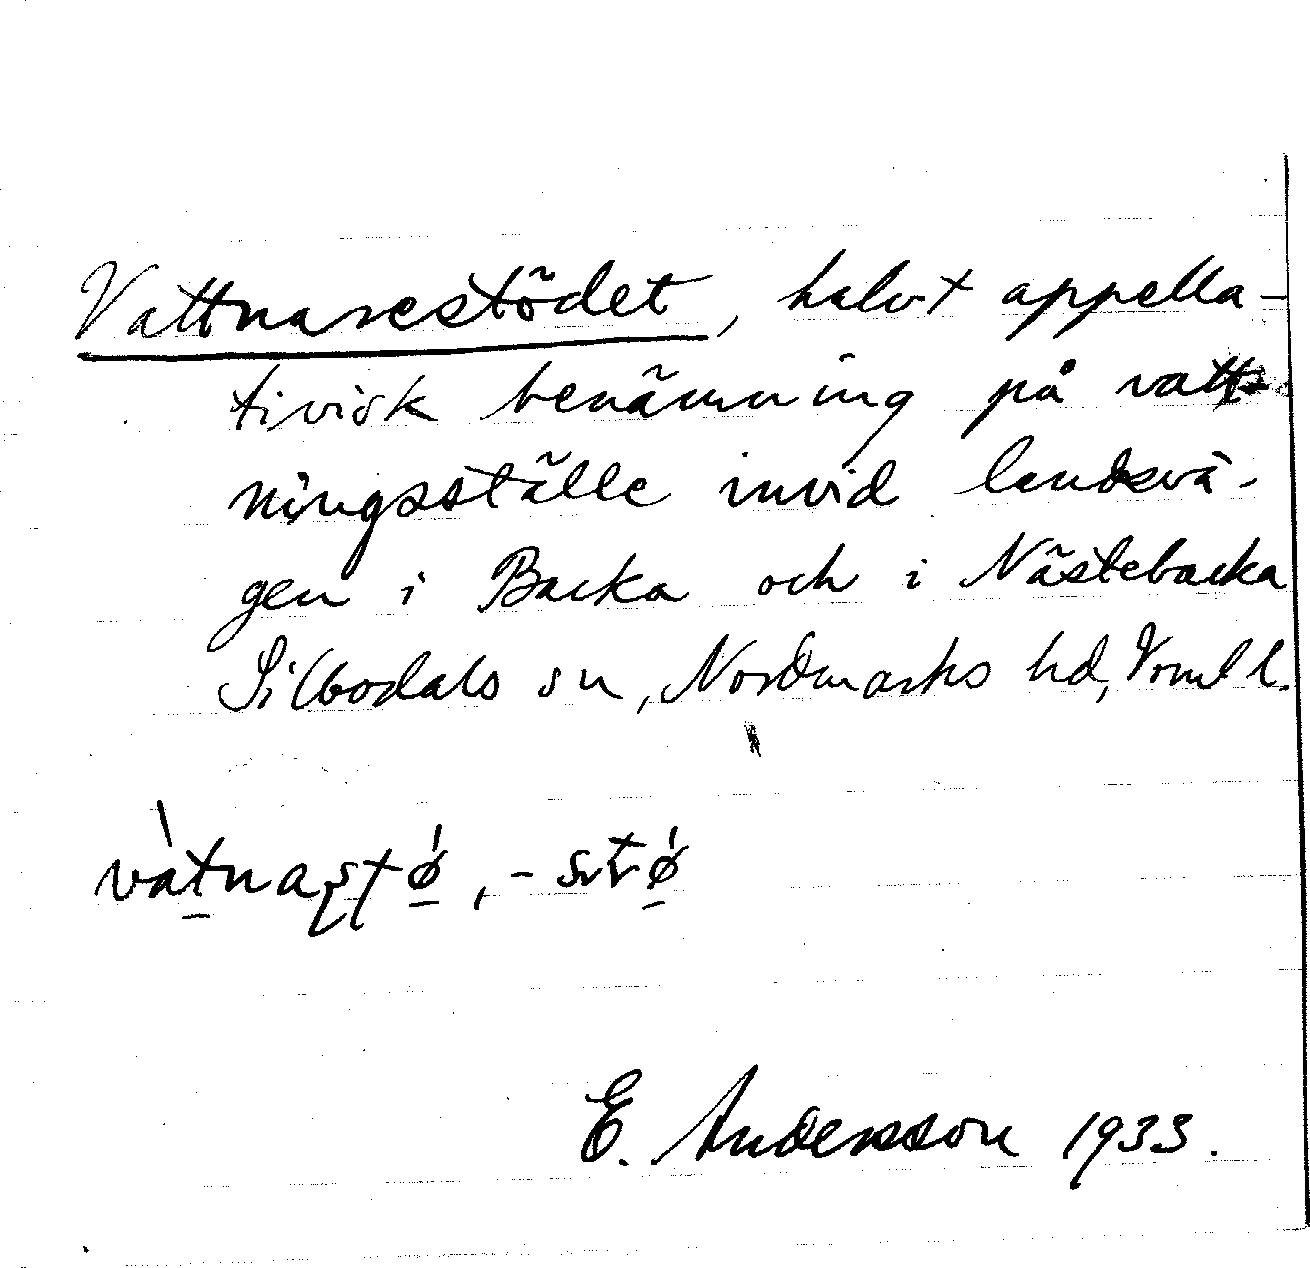 Vattnarestödet, halvt appella-
tivisk benämning på vatt-
ningsställe invid landsvä-
gen i Backa och i Nästebacka
Silbodals sn, Nordmarks hd, Vrml l.
vàtnaʂʈǿ, -strǿ
E. Andersson 1933.